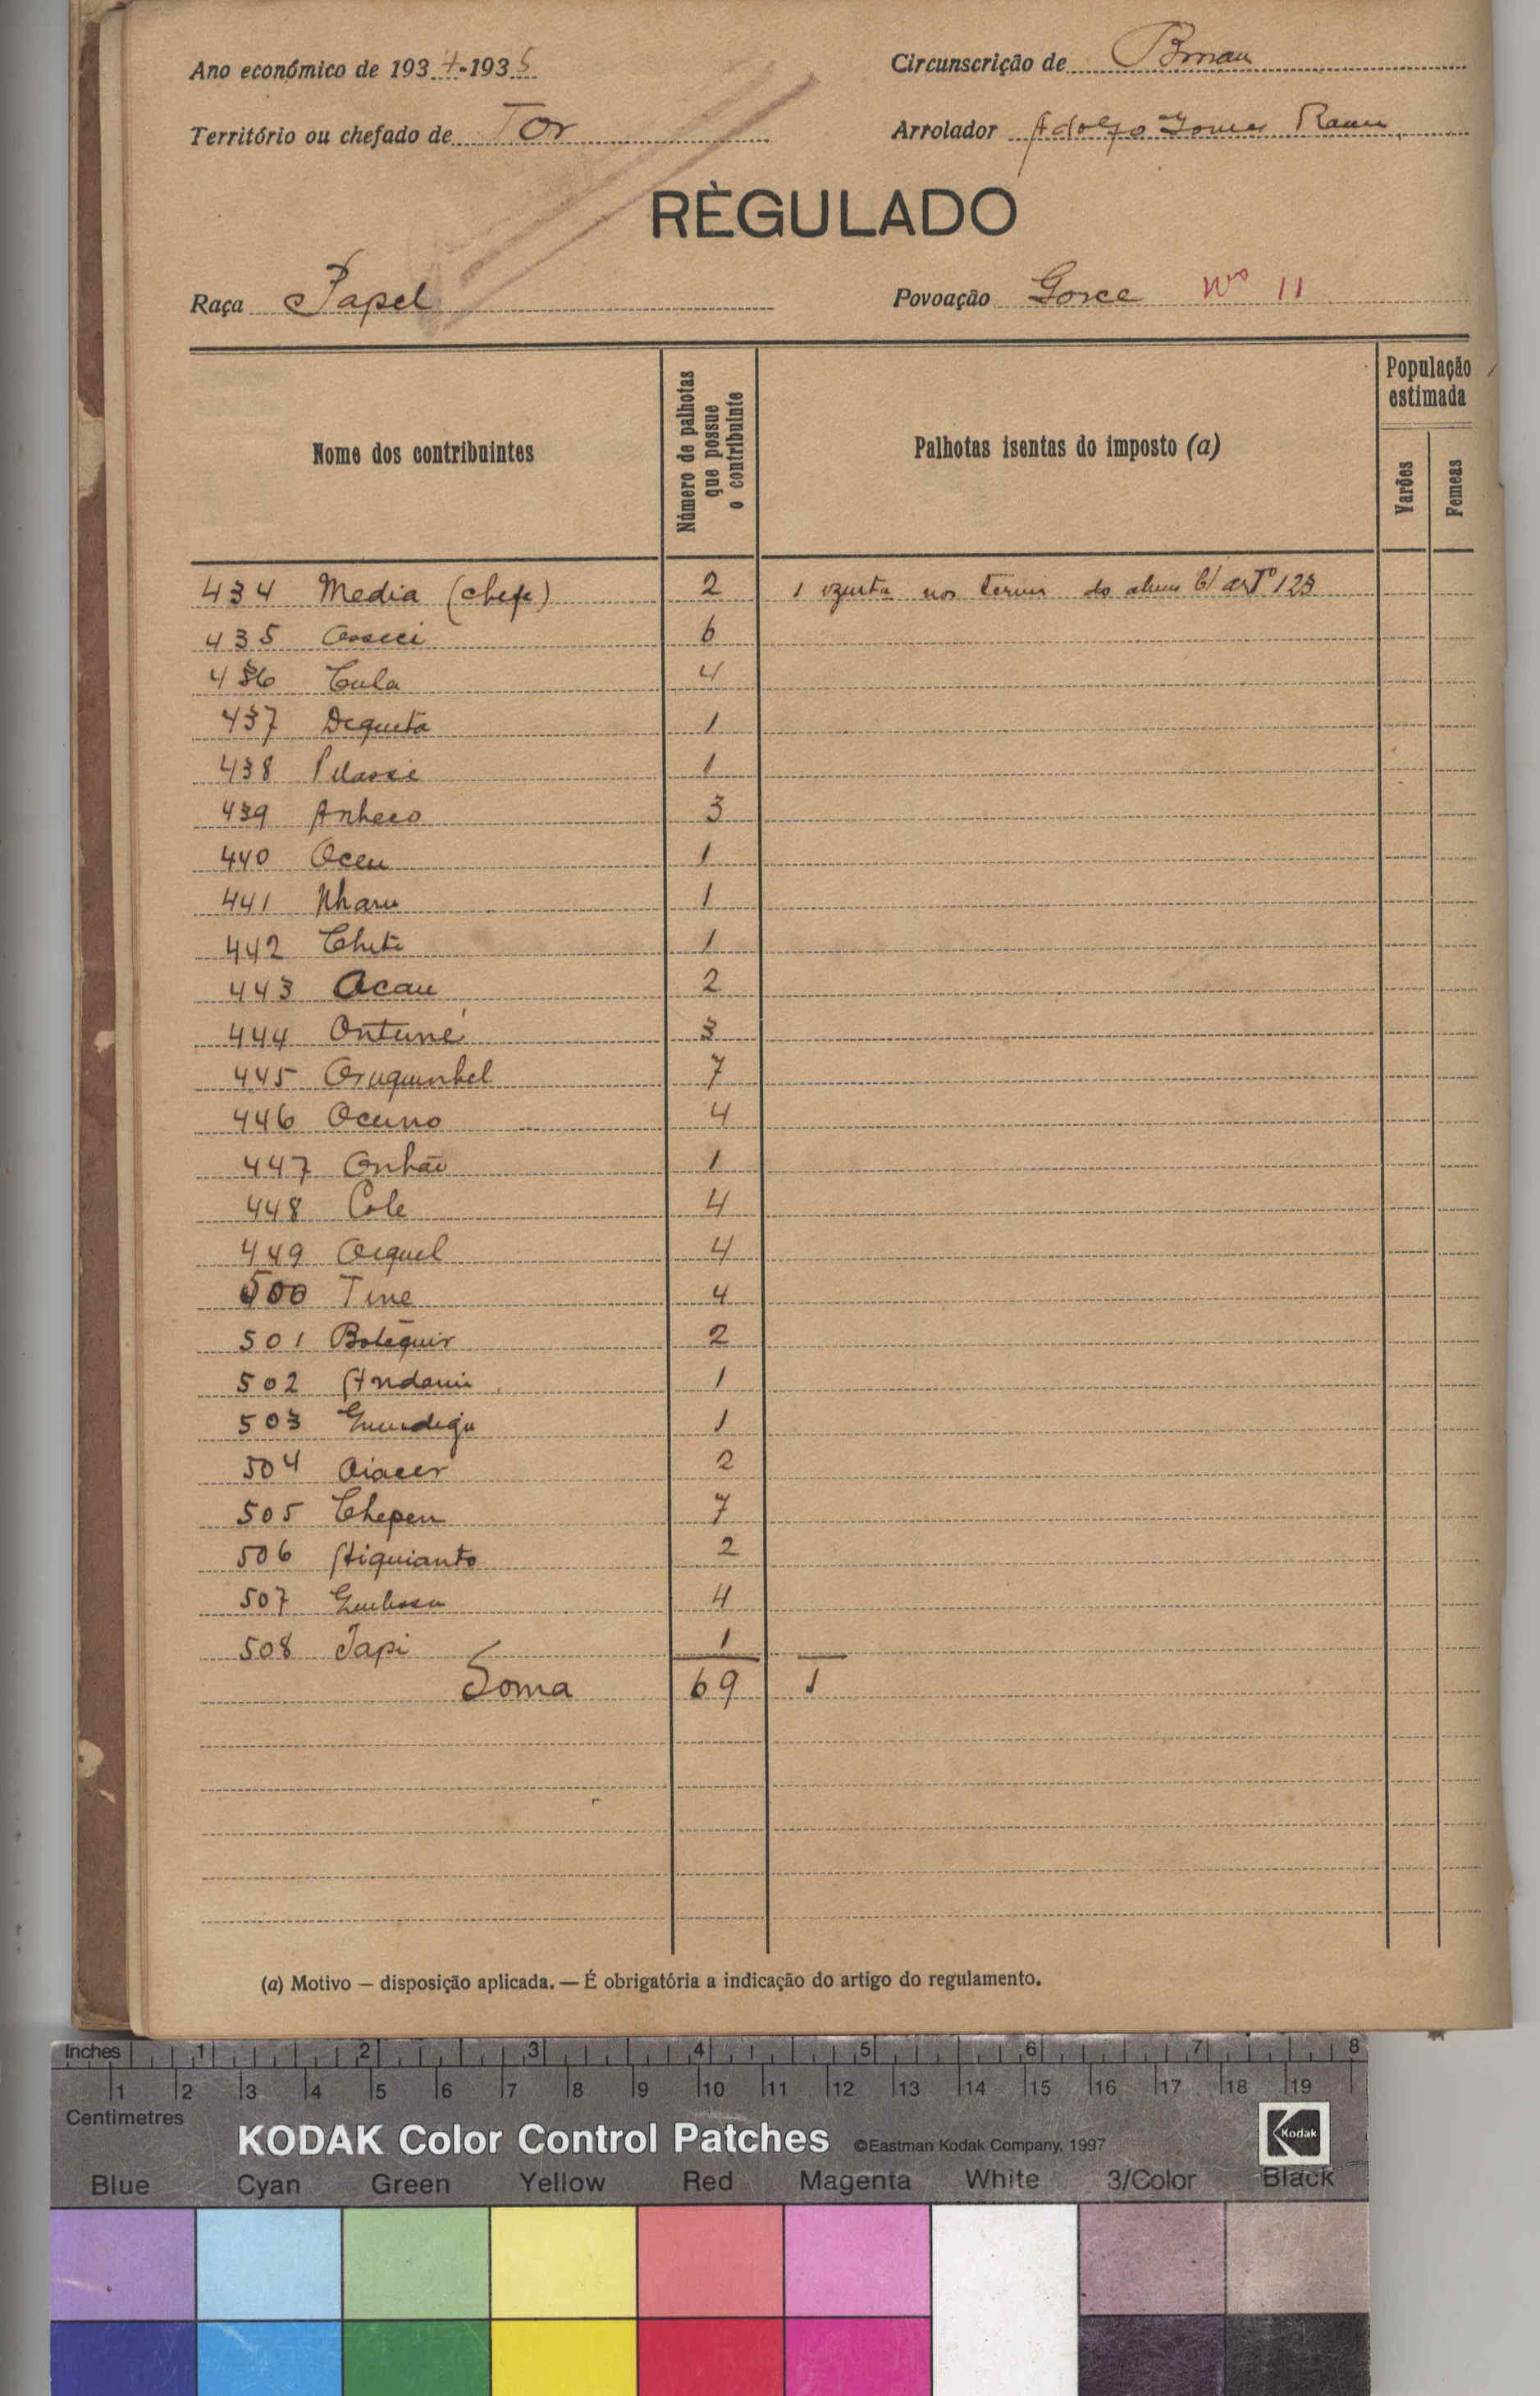 Ano económico de 1934-1935
Circunscrição de
Território ou chefado de Tor
Arrolador Adolfo Gomes
RÈGULADO
Raça Papel
Povoação Gorce Nº 11
Nome dos contribuintes
Número de palhotas que possue o contribuinte
Palhotas isentas do imposto (a)
População estimada
Varões
Femeas
434 Media (chefe) 2 1 nos do artº 123
435 6
436 Cula 4
437 Dequeta 1
438 1
439 Anheco 3
440 Oceu 1
441 Nharu 1
442 1
443 Ocau 2
444 Ontuné 3
445 7
446 Ocuno 4
447 Onhão 1
448 Cole 4
449 4
500 Tine 4
501 Botequir 2
502 1
503 1
504 2
505 Chepeu 7
506 Aiquianto 2
507 4
508 Japi 1
Soma 69 1
(a) Motivo — disposição aplicada. — É obrigatória a indicação do artigo do regulamento.
Inches 1 2 3 4 5 6 7 8
1 2 3 4 5 6 7 8 9 10 11 12 13 14 15 16 17 18 19
Centimetres
KODAK Color Control Patches ©Eastman Kodak Company, 1997 Kodak
Blue Cyan Green Yellow Red Magenta White 3/Color Black